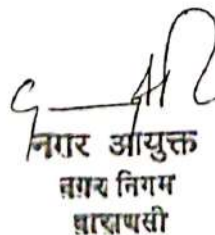 नगर आयुक्त
नगर निगम
वाराणसी